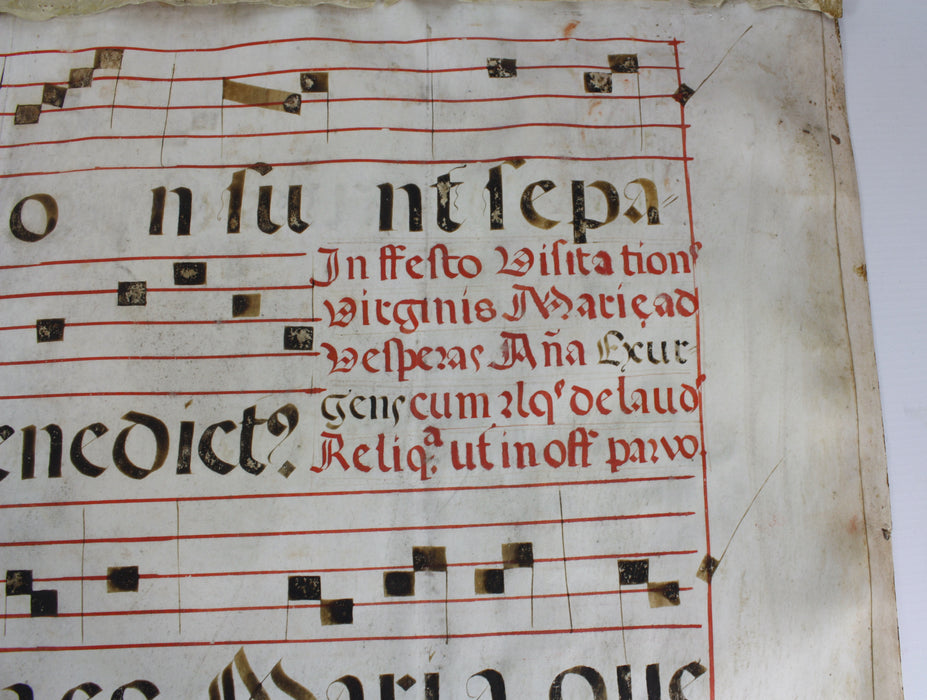 o n su nt sepa-
In ffesto Visitation⁹
Virginis Marię ad
Vesperas Aña Exur-
gens cum rlq⁹ de laud
Reliqª. ut in off parvo.
enedict?
Maria que